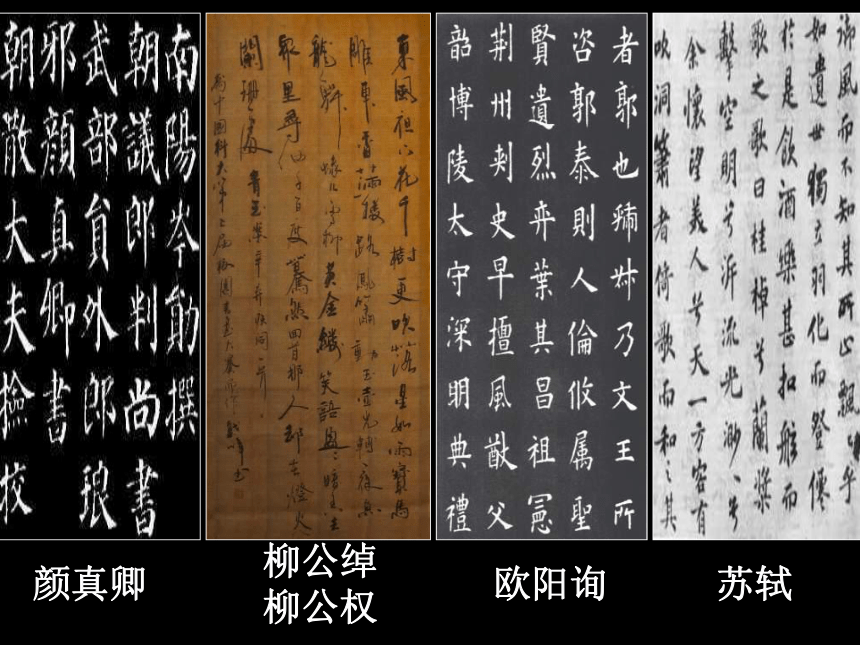 南陽岑勛撰
朝議郎判尚書
武部員外郎琅
邪顏真卿書
朝散大夫撿挍
東風夜放花千樹更吹落星如雨寶馬
雕車香滿路鳳簫聲動玉壺光轉一夜魚
龍舞蛾兒雪柳黃金縷笑語盈盈暗香去
眾里尋他千百度驀然回首那人却在燈火
闌珊處
青玉案辛弃疾詞一首
者郭也 乃文王所
咨郭泰則人倫攸属聖
賢遺烈弈葉其昌祖憲
荆州刺史早擅風猷父
韶博陵太守深明典禮
御風而不知其所止飄飄乎
如遺世獨立羽化而登僊
於是飲酒樂甚扣舷而
歌之歌曰桂棹兮蘭槳
擊空明兮泝流光渺渺兮
余懷望美人兮天一方客有
吹洞簫者倚歌而和之其
颜真卿
柳公绰
柳公权
欧阳询
苏轼